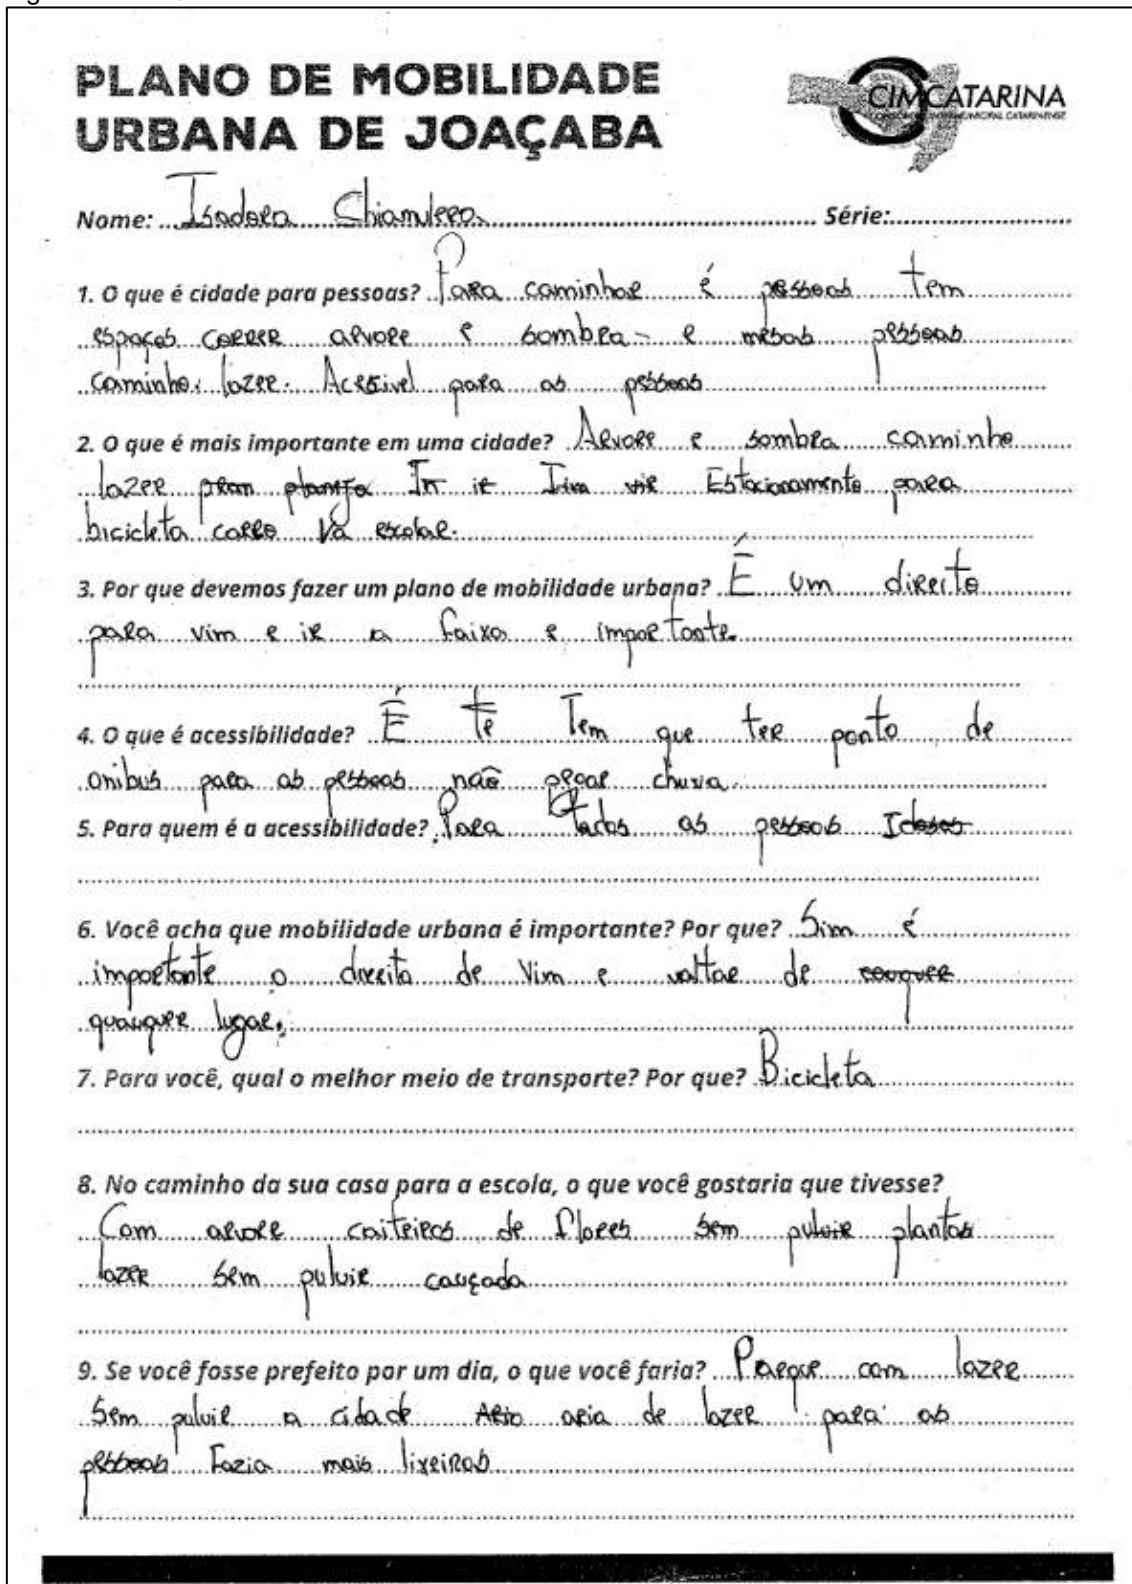 PLANO DE MOBILIDADE
URBANA DE JOAÇABA
CIMCATARINA
CONSÓRCIO INTERMUNICIPAL CATARINENSE
Nome: Isadora Chiamulera Série:
1. O que é cidade para pessoas? Para caminhar é pessoas tem
espaços correr arvore e sombra - e mesas pessoas
caminho. lazer. Acesivel para as pessoas
2. O que é mais importante em uma cidade? Arvore e sombra caminho
lazer ir vir Estacionamento para
bicicleta carro Vã escolar.
3. Por que devemos fazer um plano de mobilidade urbana? É um direito
para vim e ir a faixa e importante.
4. O que é acessibilidade? É te Tem que ter ponto de
onibus para as pessoas não pegar chuva.
5. Para quem é a acessibilidade? Para todos as pessoas Idosos
6. Você acha que mobilidade urbana é importante? Por que? Sim é
importante o direito de vim e voltar de
quauquer lugar.
7. Para você, qual o melhor meio de transporte? Por que? Bicicleta
8. No caminho da sua casa para a escola, o que você gostaria que tivesse?
Com arvore caiteiros de flores sem puluir plantas
lazer sem puluir cauçada
9. Se você fosse prefeito por um dia, o que você faria? Parque com lazer
sem puluir a cidade aria de lazer para as
pessoas Fazia mais lixeiras